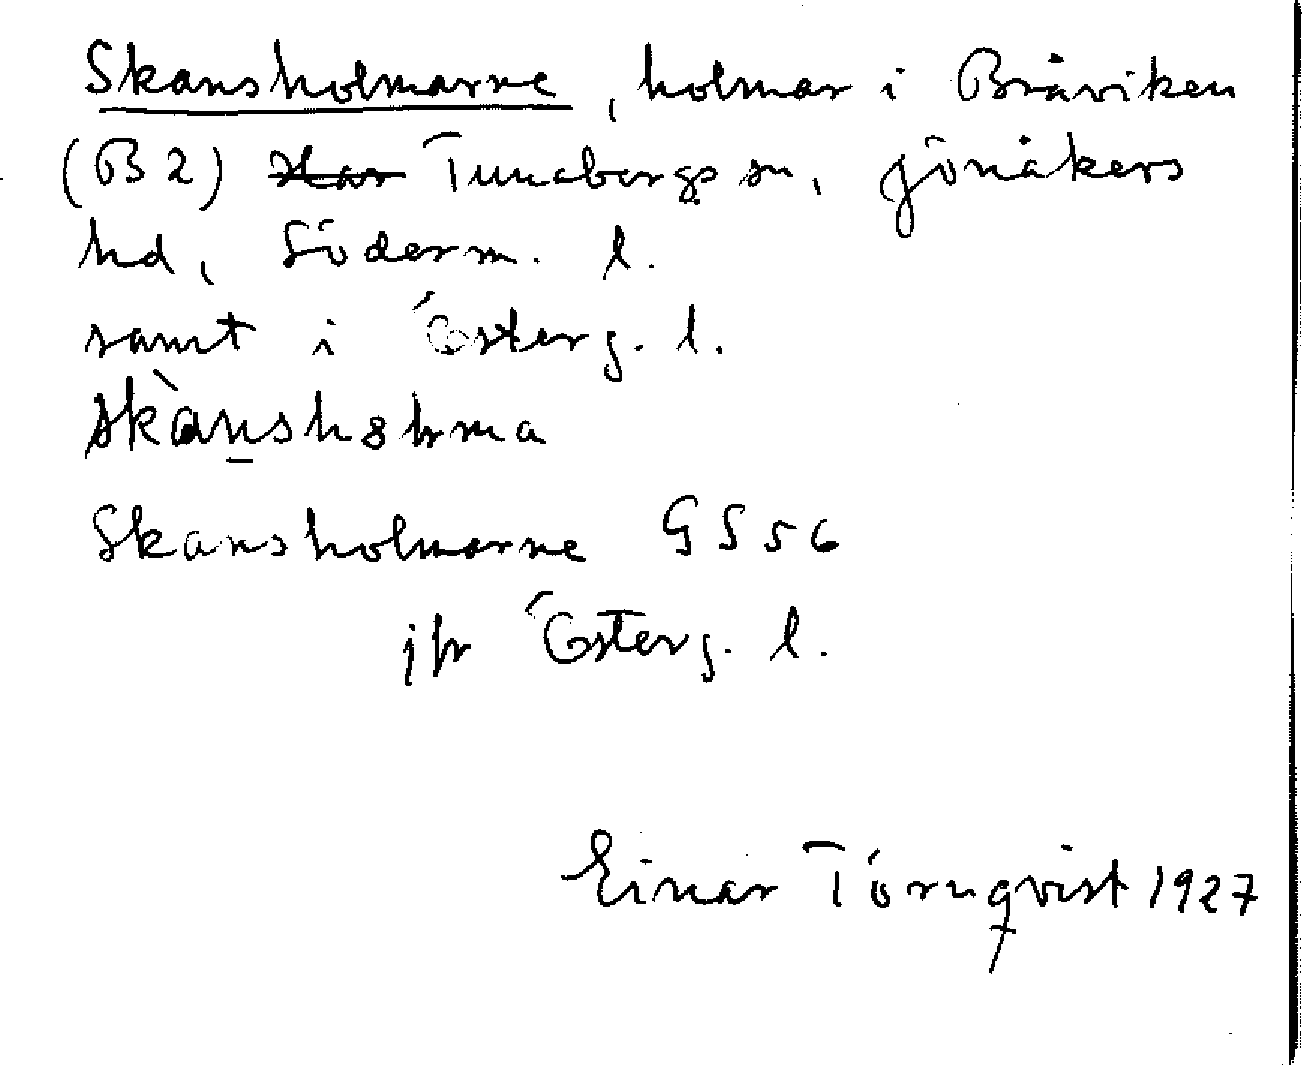 Skansholmarne, holmar i Bråviken
(B2) Tunabergs sn, Jönåkers
hd, Söderm. l.
samt i Österg. l.
Skansholmarne GS 56
jfr Österg. l.
Einar Törnqvist 1927